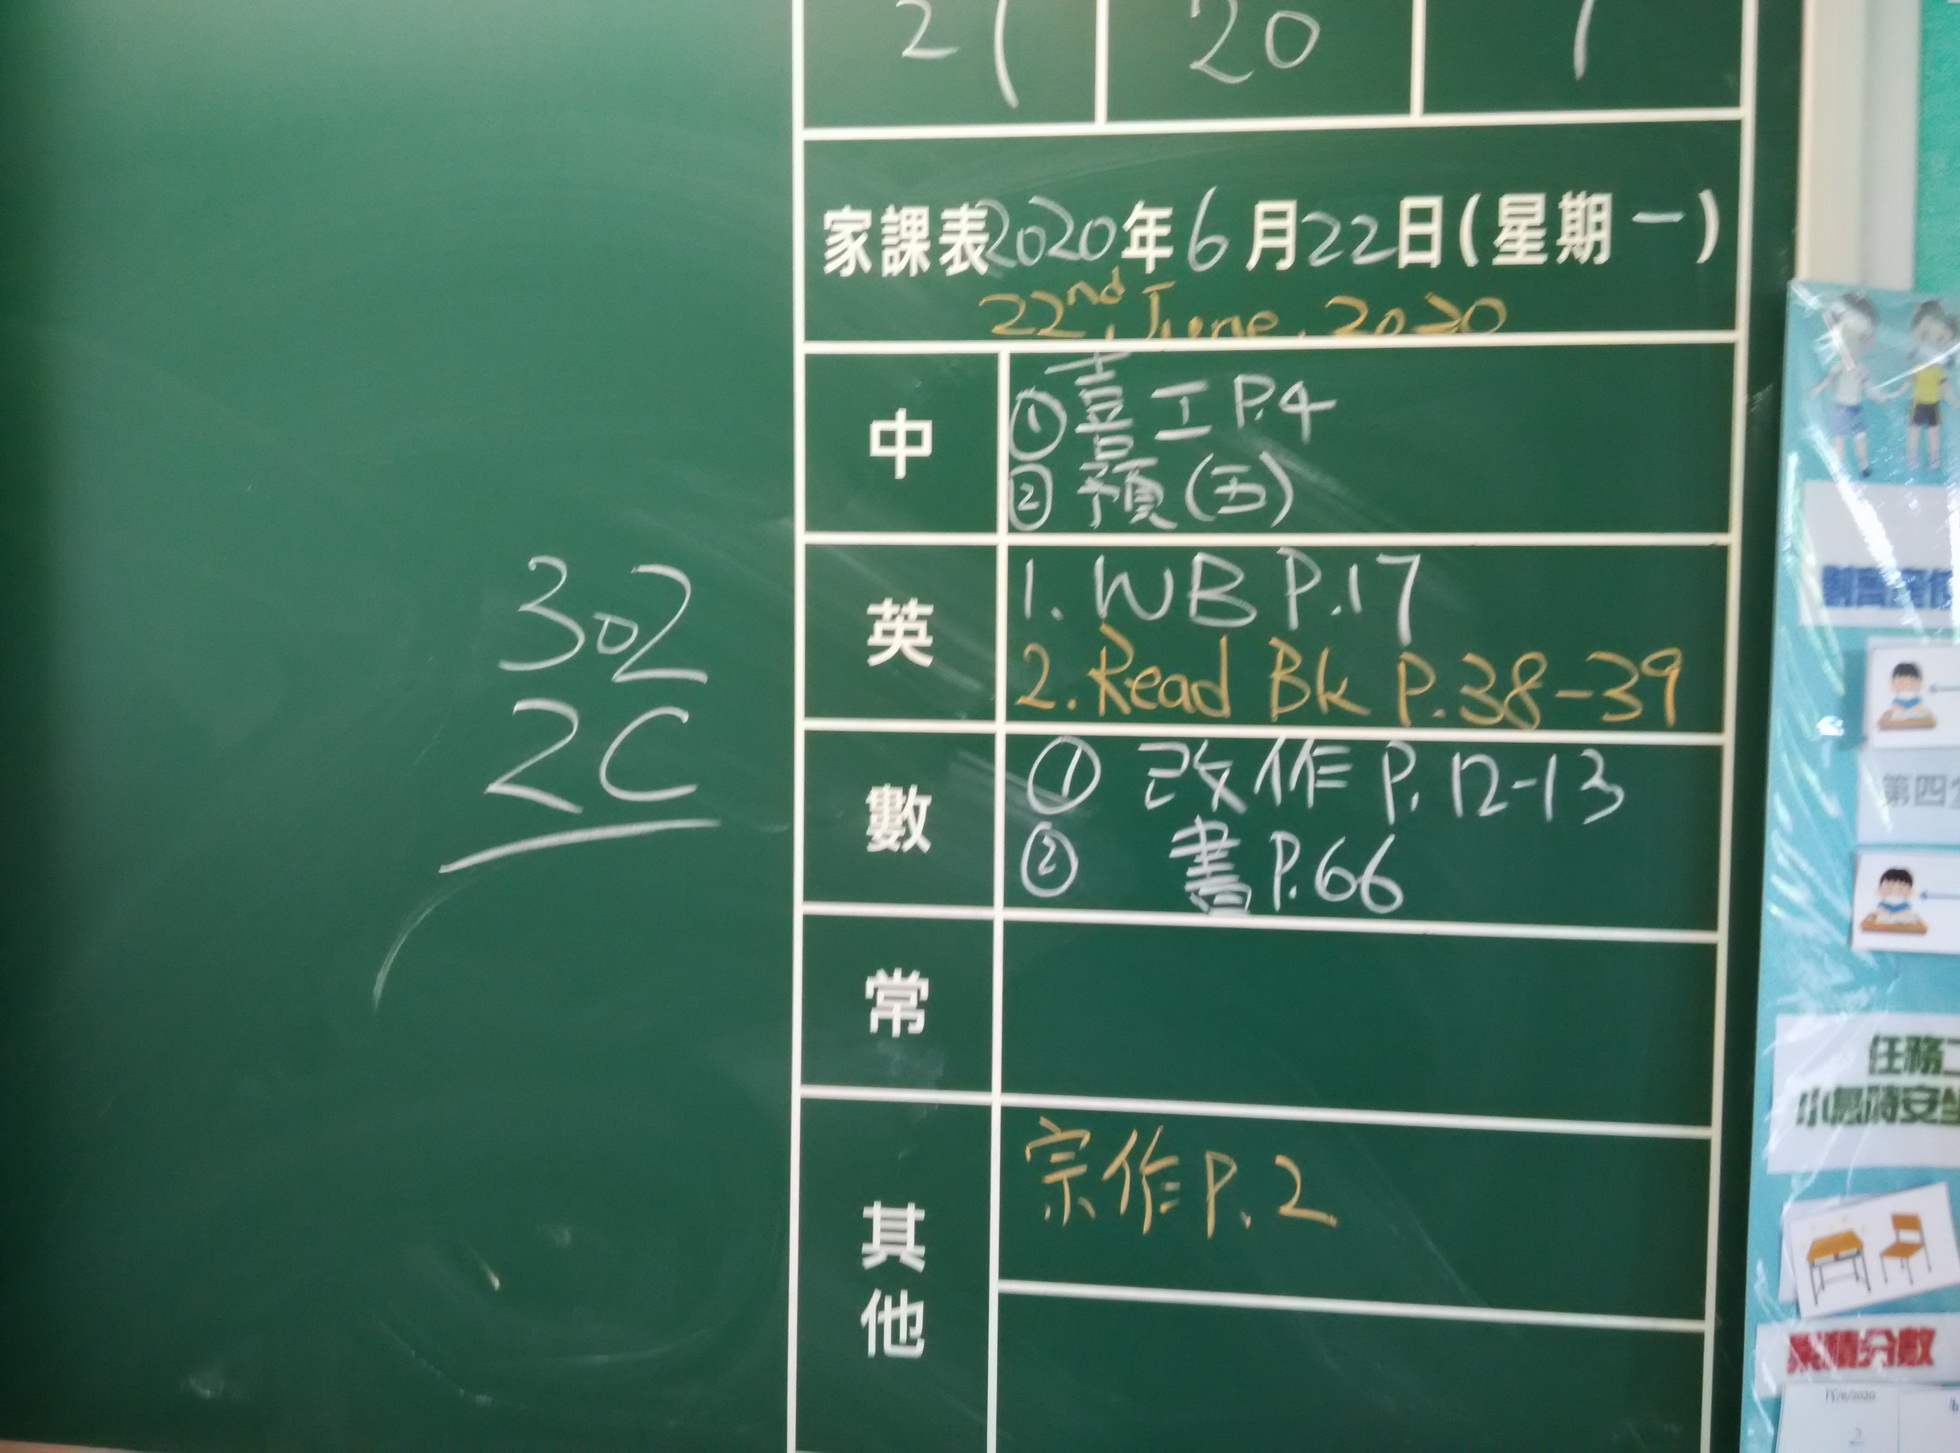 21 20 1
家課表2020年6月22日(星期一)
22nd, June, 2020
中
① 書工P.4
② 預(五)
302
2C
英
1. WB P.17
2. Read Bk P.38-39
數
① 改作P.12-13
② 書P.66
常
其他
宗作P.2
第四
任務二
小息時安坐
累積分數
15/6/2020